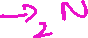 →₂ N